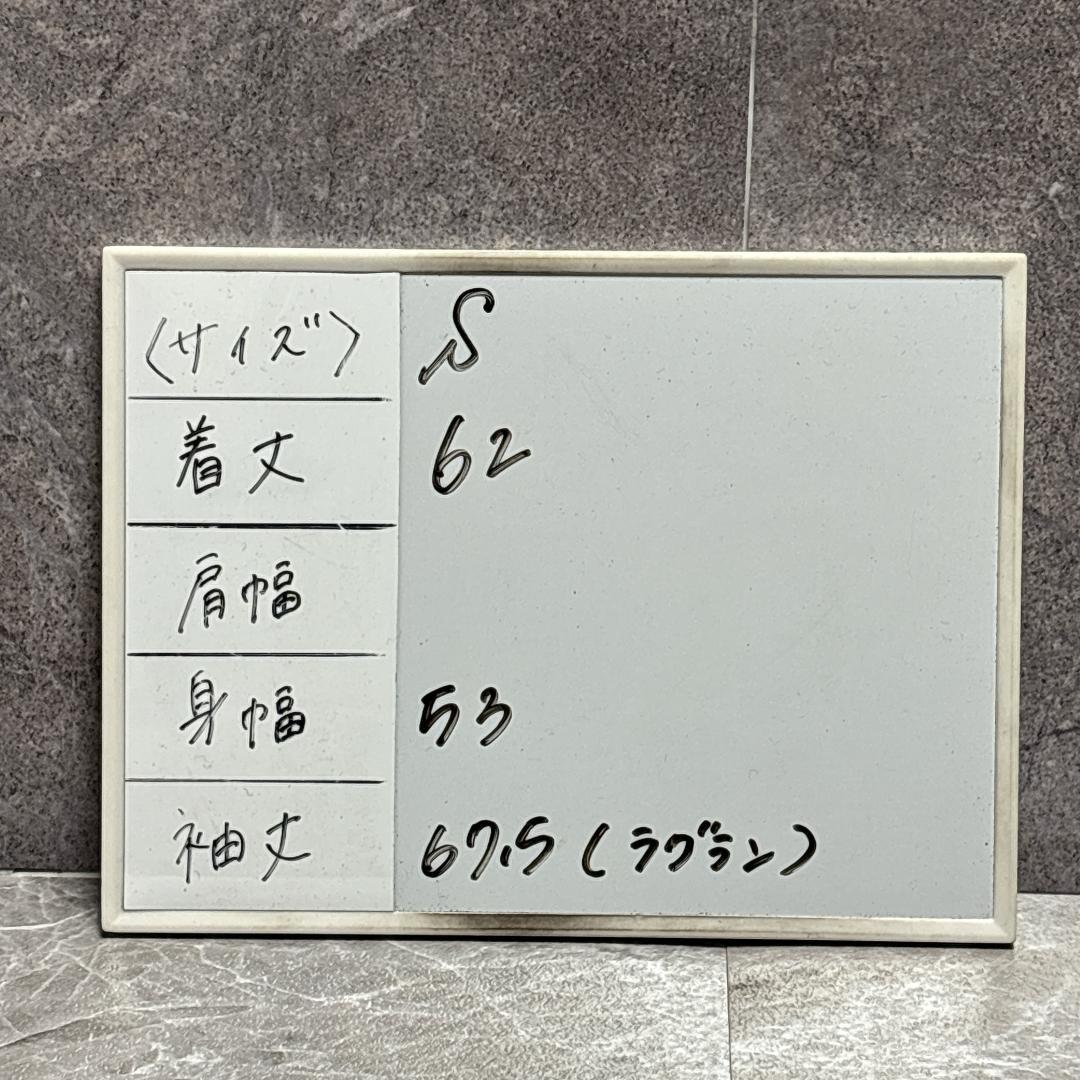 〈サイズ〉 S
着丈 62
肩幅
身幅 53
袖丈 67.5 (ラグラン)